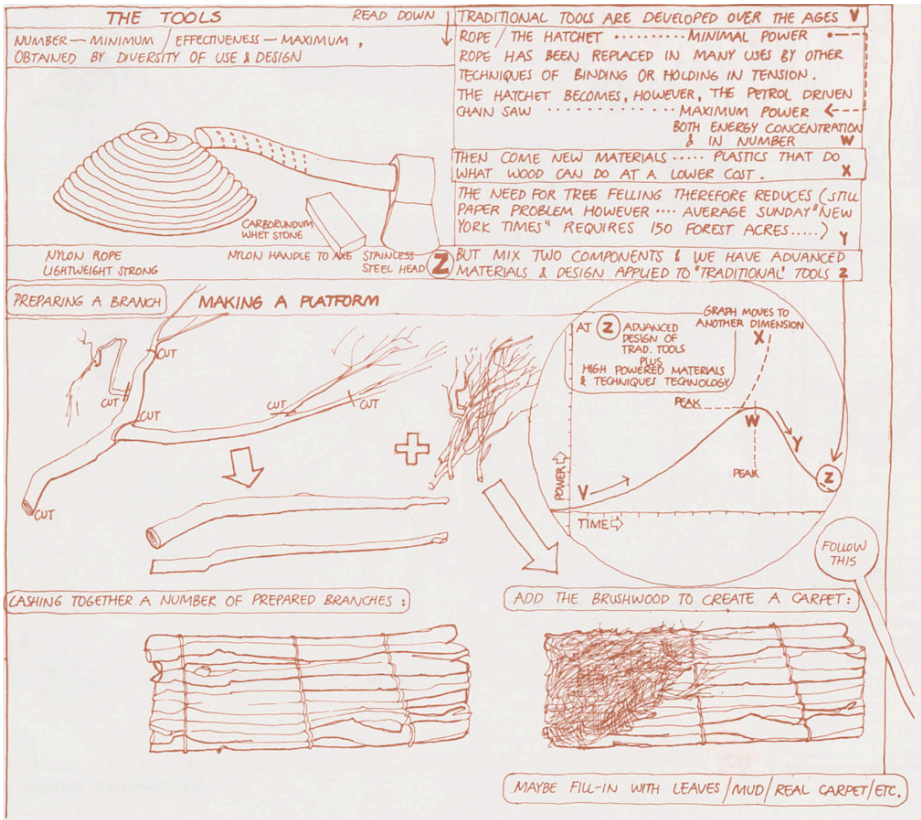 THE TOOLS
READ DOWN
NUMBER — MINIMUM / EFFECTIVENESS — MAXIMUM ,
OBTAINED BY DIVERSITY OF USE & DESIGN
CARBORUNDUM
WHET STONE
NYLON ROPE
LIGHTWEIGHT STRONG
NYLON HANDLE TO AXE
STAINLESS
STEEL HEAD
Z
TRADITIONAL TOOLS ARE DEVELOPED OVER THE AGES V
ROPE / THE HATCHET ········· MINIMAL POWER
ROPE HAS BEEN REPLACED IN MANY USES BY OTHER
TECHNIQUES OF BINDING OR HOLDING IN TENSION .
THE HATCHET BECOMES, HOWEVER, THE PETROL DRIVEN
CHAIN SAW ············· MAXIMUM POWER
BOTH ENERGY CONCENTRATION
& IN NUMBER W
THEN COME NEW MATERIALS ····· PLASTICS THAT DO
WHAT WOOD CAN DO AT A LOWER COST . X
THE NEED FOR TREE FELLING THEREFORE REDUCES (STILL
PAPER PROBLEM HOWEVER ···· AVERAGE SUNDAY "NEW
YORK TIMES" REQUIRES 150 FOREST ACRES.....) Y
BUT MIX TWO COMPONENTS & WE HAVE ADVANCED
MATERIALS & DESIGN APPLIED TO "TRADITIONAL" TOOLS Z
PREPARING A BRANCH
MAKING A PLATFORM
CUT
CUT
CUT
CUT
CUT
CUT
AT Z ADVANCED
DESIGN OF
TRAD. TOOLS
PLUS
HIGH POWERED MATERIALS
& TECHNIQUES TECHNOLOGY
GRAPH MOVES TO
ANOTHER DIMENSION
X
PEAK
W
Y
PEAK
Z
V
POWER
TIME
FOLLOW
THIS
LASHING TOGETHER A NUMBER OF PREPARED BRANCHES :
ADD THE BRUSHWOOD TO CREATE A CARPET :
MAYBE FILL-IN WITH LEAVES / MUD / REAL CARPET / ETC.